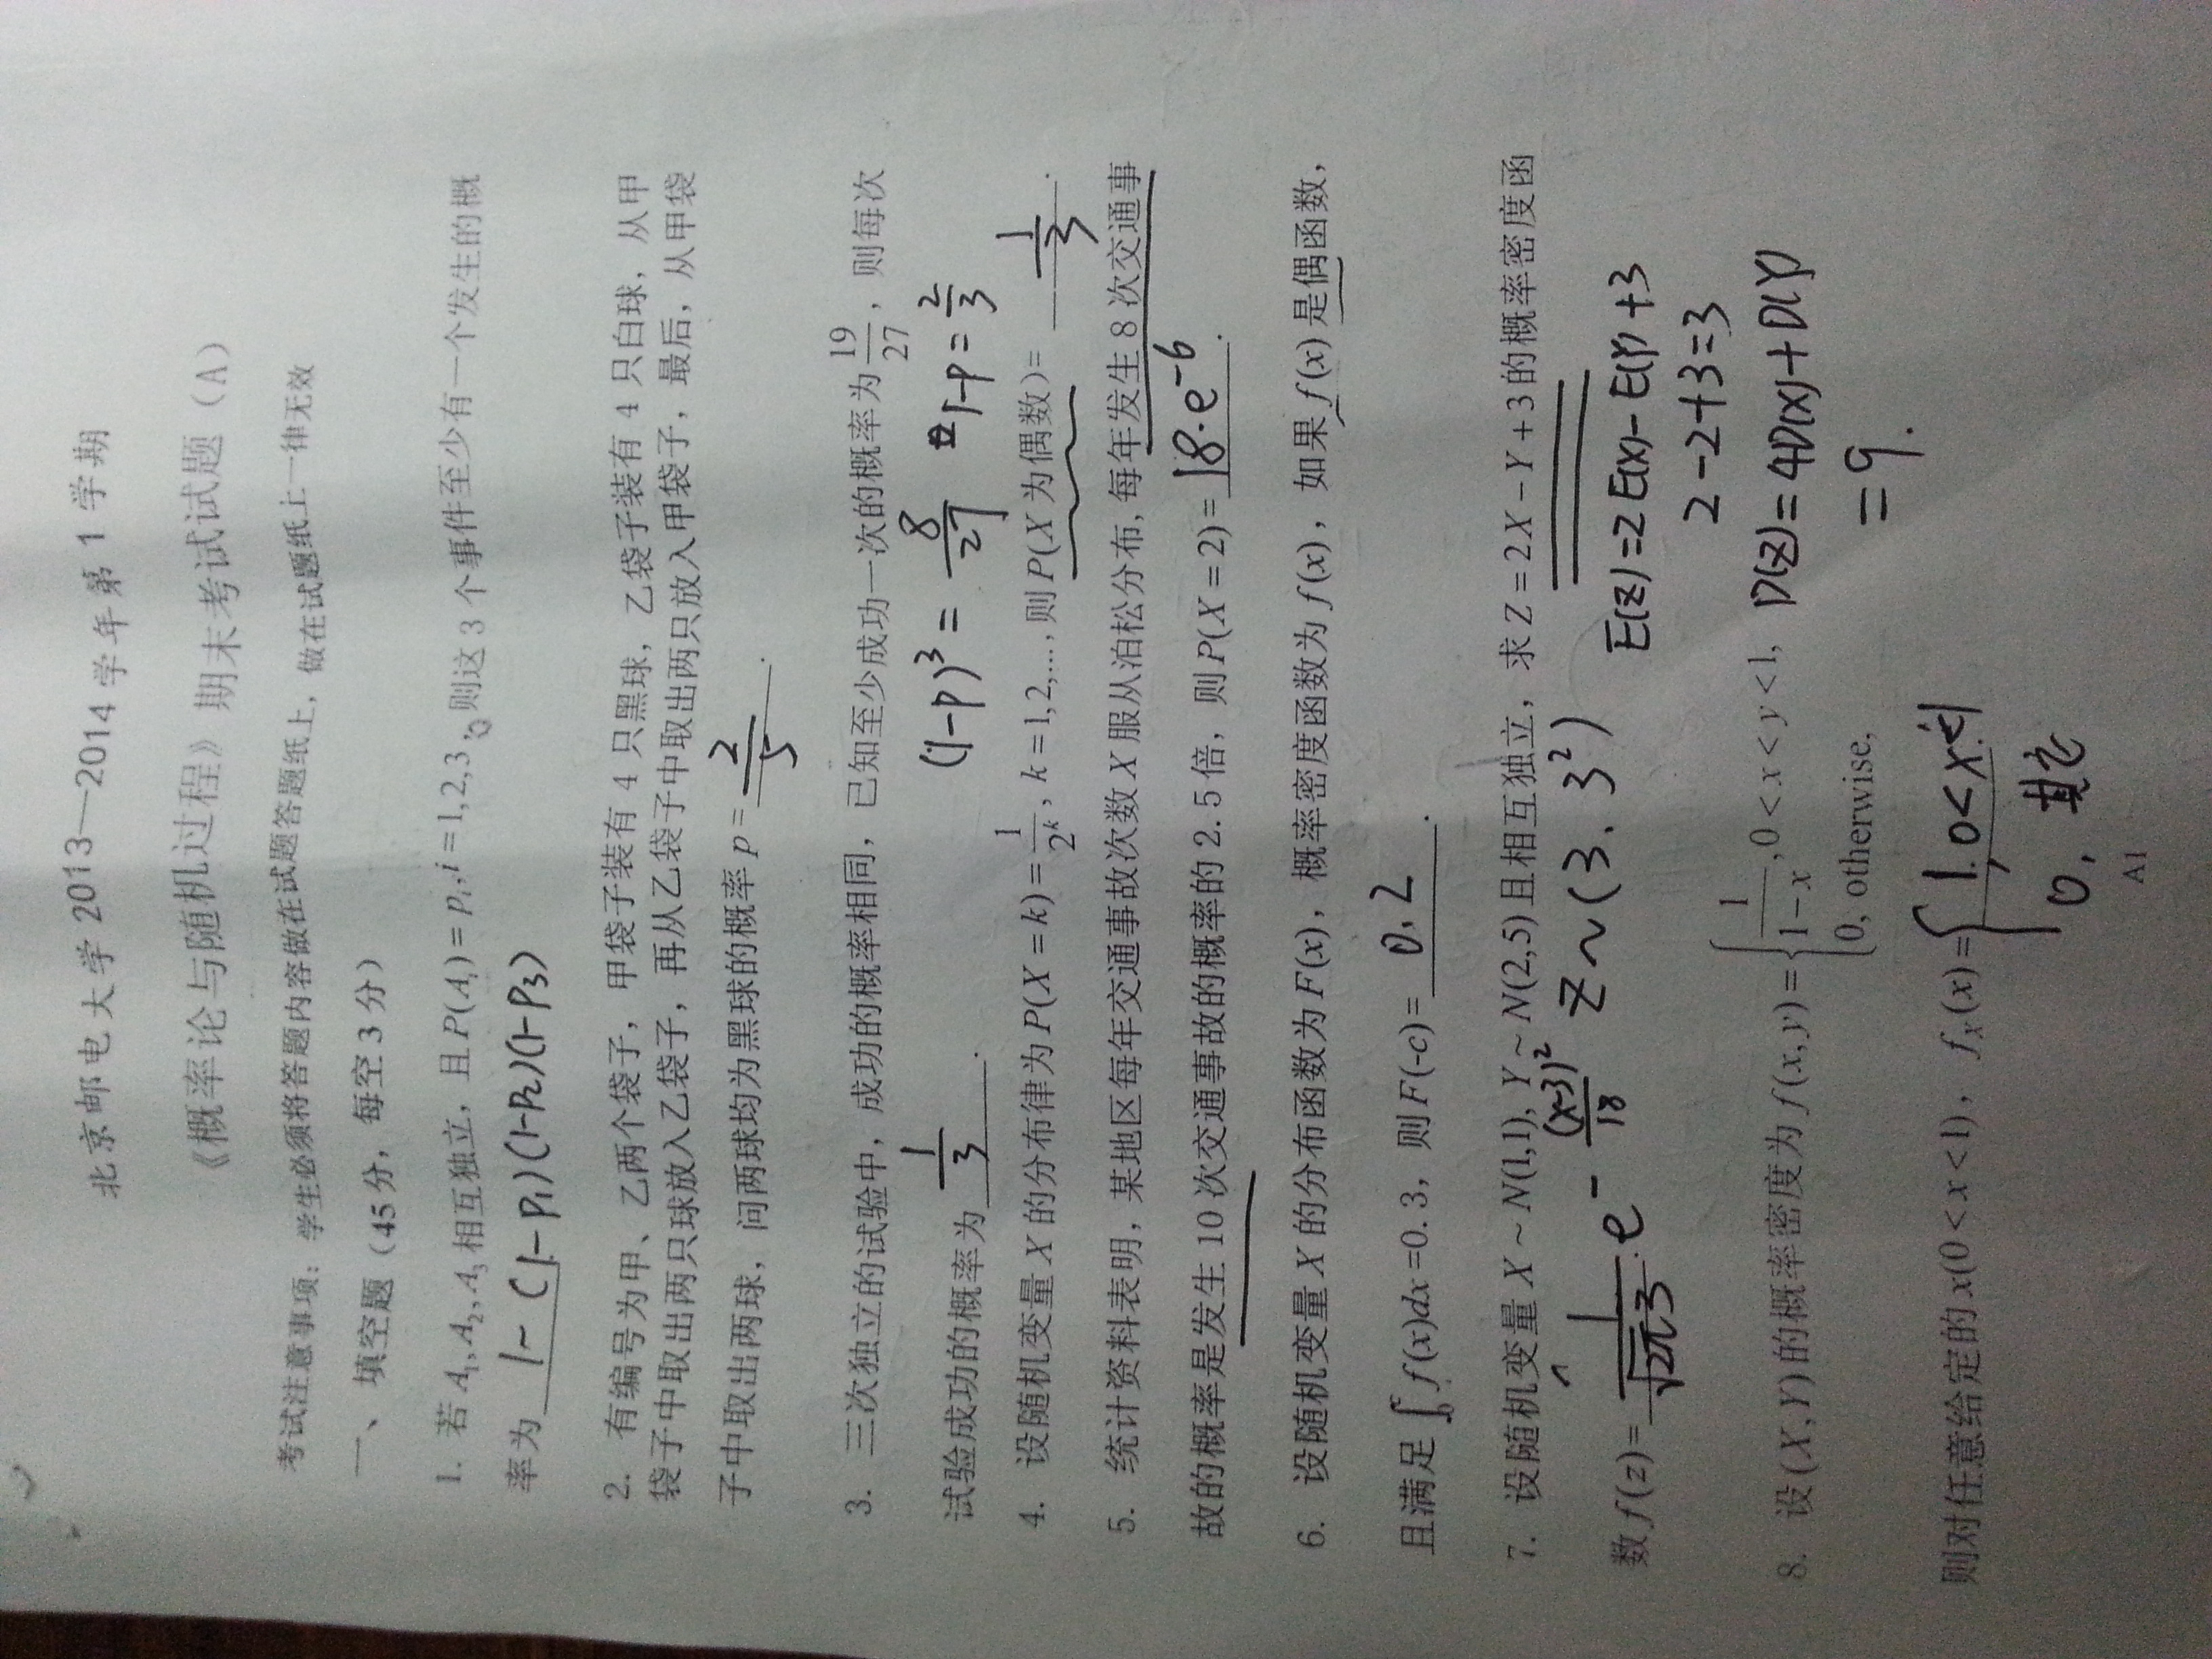 北京邮电大学2013—2014学年第1学期
《概率论与随机过程》期末考试试题（A）
考试注意事项：学生必须将答题内容做在试题答题纸上，做在试题纸上一律无效
一、填空题（45分，每空3分）
1. 若 A₁, A₂, A₃ 相互独立，且 P(Aᵢ) = pᵢ, i = 1,2,3，则这3个事件至少有一个发生的概
率为 1-(1-p₁)(1-p₂)(1-p₃)
2. 有编号为甲、乙两个袋子，甲袋子装有 4 只黑球，乙袋子装有 4 只白球，从甲
袋子中取出两只球放入乙袋子，再从乙袋子中取出两只放入甲袋子，最后，从甲袋
子中取出两球，问两球均为黑球的概率 p = 2/5 .
3. 三次独立的试验中，成功的概率相同，已知至少成功一次的概率为 19/27，则每次
试验成功的概率为 1/3 . (1-p)³ = 8/27 1-p = 2/3
4. 设随机变量 X 的分布律为 P(X = k) = 1/2ᵏ, k = 1,2,..., 则 P(X 为偶数) = 1/3 .
5. 统计资料表明，某地区每年交通事故次数 X 服从泊松分布, 每年发生 8 次交通事
故的概率是发生 10 次交通事故的概率的 2.5 倍，则 P(X = 2) = 18·e⁻⁶ .
6. 设随机变量 X 的分布函数为 F(x)，概率密度函数为 f(x)，如果 f(x) 是偶函数，
且满足 ∫₀ᶜ f(x)dx =0.3，则 F(-c) = 0.2 .
7. 设随机变量 X ~ N(1,1), Y ~ N(2,5) 且相互独立，求 Z = 2X − Y + 3 的概率密度函
数 f(z) = 1/(√2π 3) · e^(-(x-3)²/18) Z~(3, 3²)
E(Z)=2E(X)-E(Y)+3
2-2+3=3
8. 设 (X,Y) 的概率密度为 f(x,y) = { 1/(1−x), 0 < x < y < 1, D(Z)=4D(X)+D(Y)
0, otherwise, =9.
则对任意给定的 x(0 < x < 1)， f_X(x) = { 1, 0<x<1
0, 其它
A1